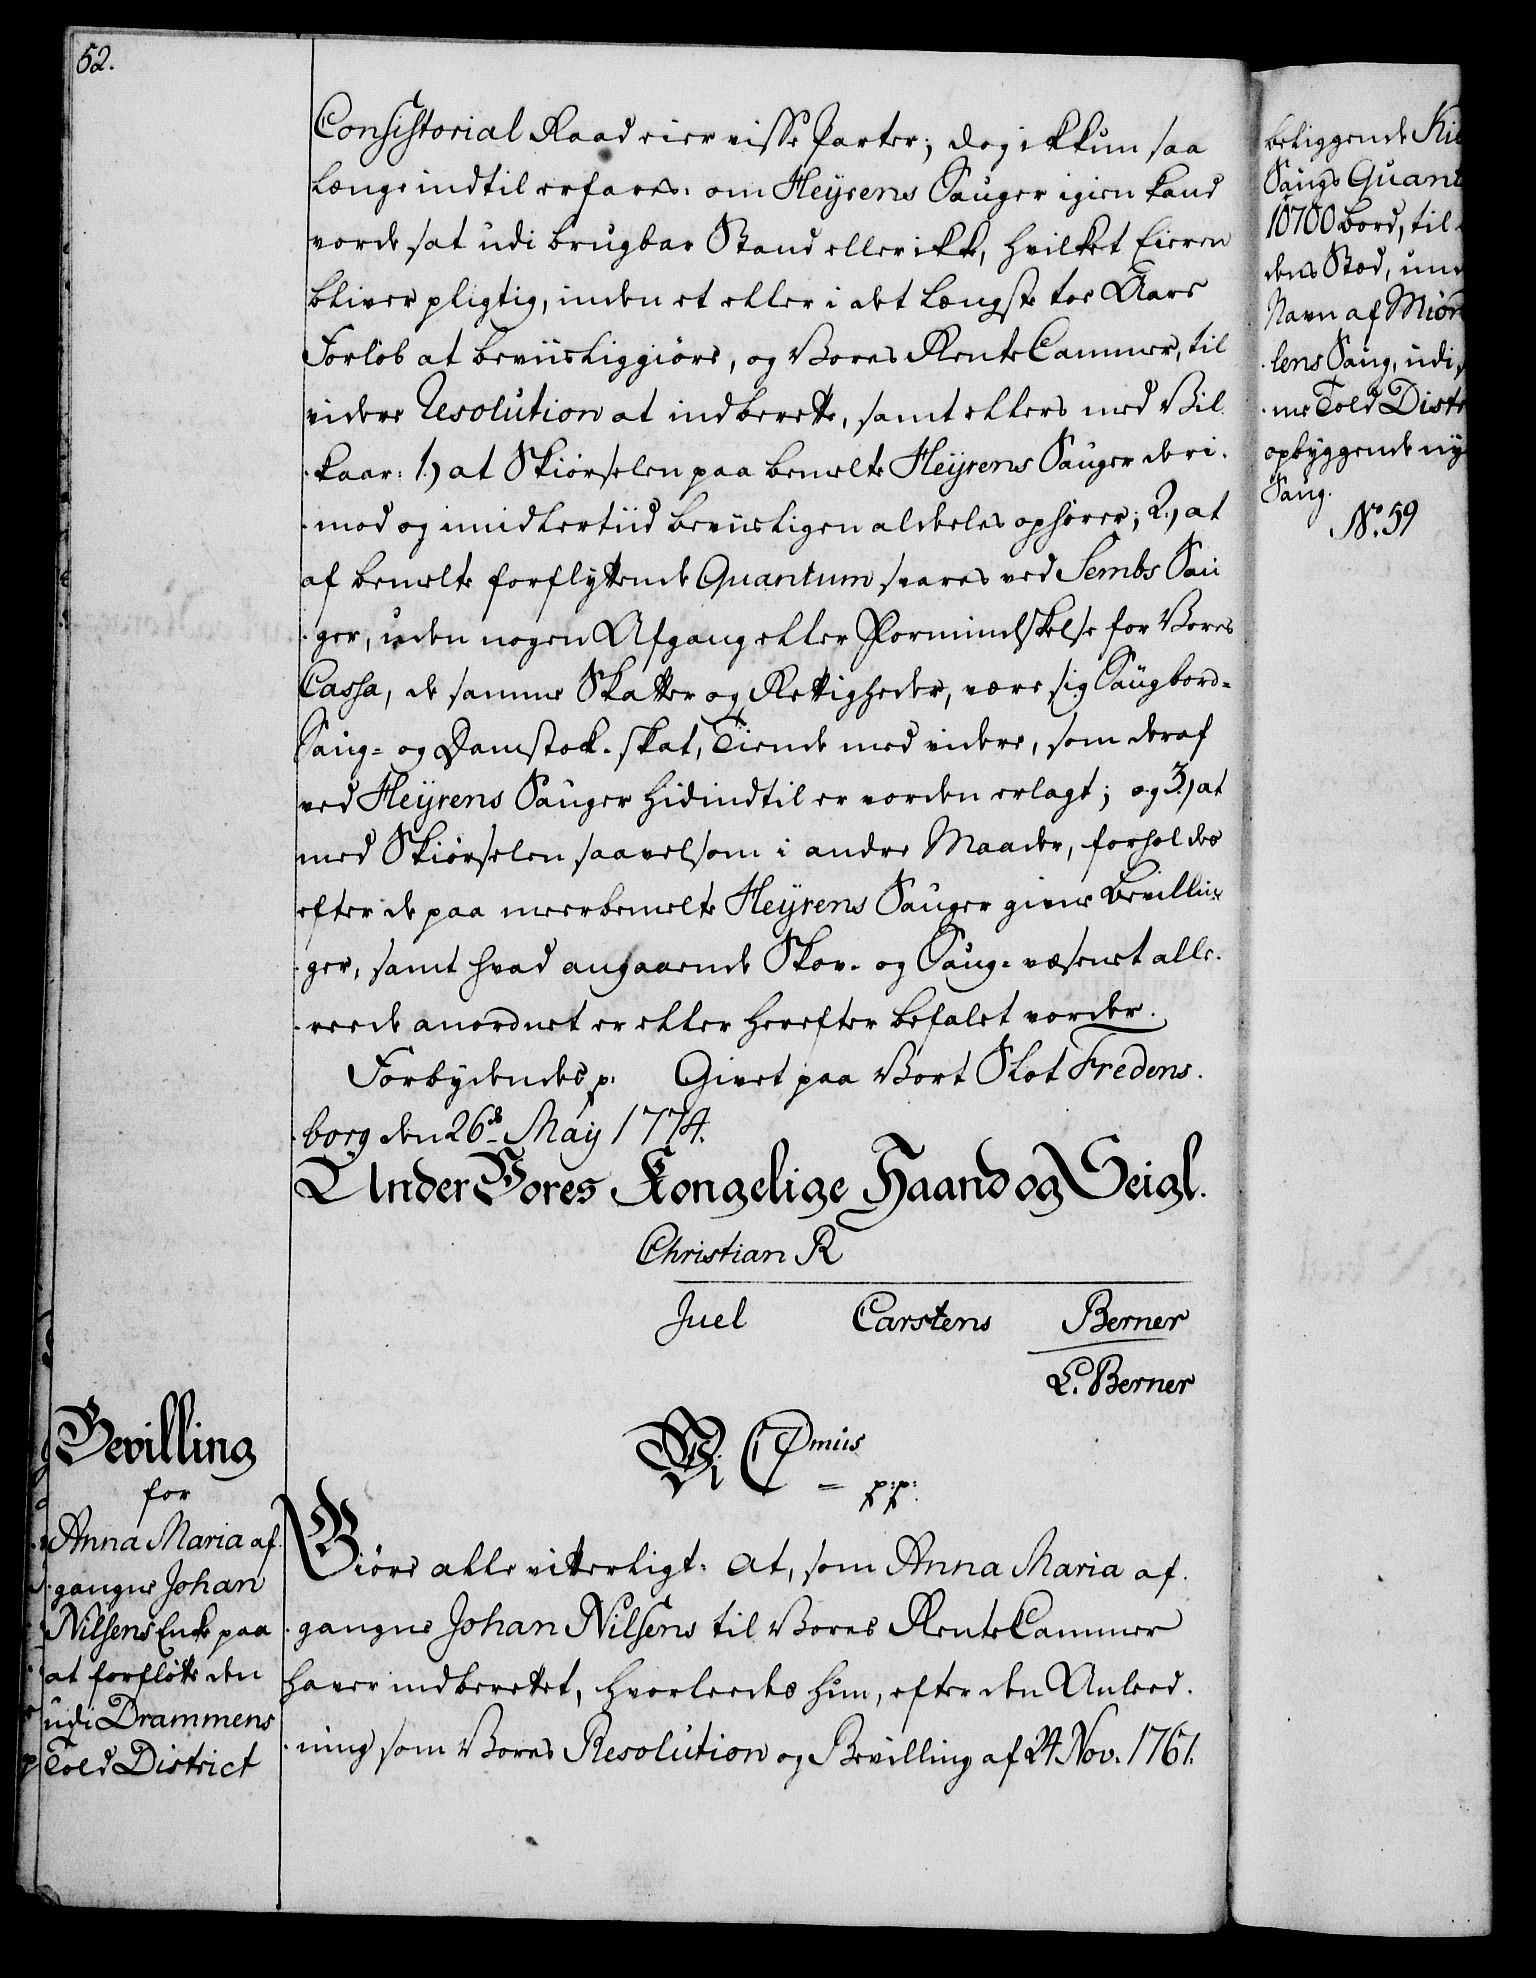 52.
Consistorial Raad eier visse Parter; dog ikkun saa
længe indtil erfares: om Heyrens Sauger igien kand
vorde sat udi brugbar Stand eller ikke, hvilket Eieren
bliver pligtig, inden et eller i det længste toe Aars
Forløb at beviisliggiøre, og Vores RenteCammer, til
videre Resolution at indberette, samt ellers med Vil-
-kaar: 1.) at Skiørselen paa bemelte Heyrens Sauger deri-
-mod og imidlertiid beviisligen aldeeles ophører; 2.) at
af bemelte forflyttende Quantum svares ved Sembs Sau
-ger, uden nogen Afgang eller Formindskelse for Vores
Cassa, de samme Skatter og Rettigheder, være sig Saugbord-
Saug- og Damstok-skat, Tiende med videre, som deraf
ved Heyrens Sauger hidindtil er vorden erlagt; og 3.) at
med Skiørselen saavelsom i andre Maader, forholdes
efter de paa meerbemelte Heyrens Sauger givne Bevillin-
-ger, samt hvad angaaende Skov- og Saug-væsenet alle-
-reede anordnet er eller herefter befalet vorder.
Forbydendes p: Givet paa Vort Slot Fredens-
-borg den 26de May 1774.
Under Vores Kongelige Haand og Seigl.
Christian R
Juel Carstens Berner
L. Berner
Bevilling
for
Anna Maria af-
-gangne Johan
Nilsens Enke paa
at forfløtte den
udi Drammens
Told District
Vi C 7mus
= p:p:
Giøre alle vitterligt: at, som Anna Maria af-
-gangne Johan Nilsens til Vores RenteCammer
haver indberettet, hvorleedes hun, efter den Anleed-
-ning som Vores Resolution og Bevilling af 24 Nov. 1761.
beliggende
Saugs
10700 bord, til
dens Sted,
Navn af
-lens Saug, udi
-me Told
opbyggende nye
Saug.
No. 59